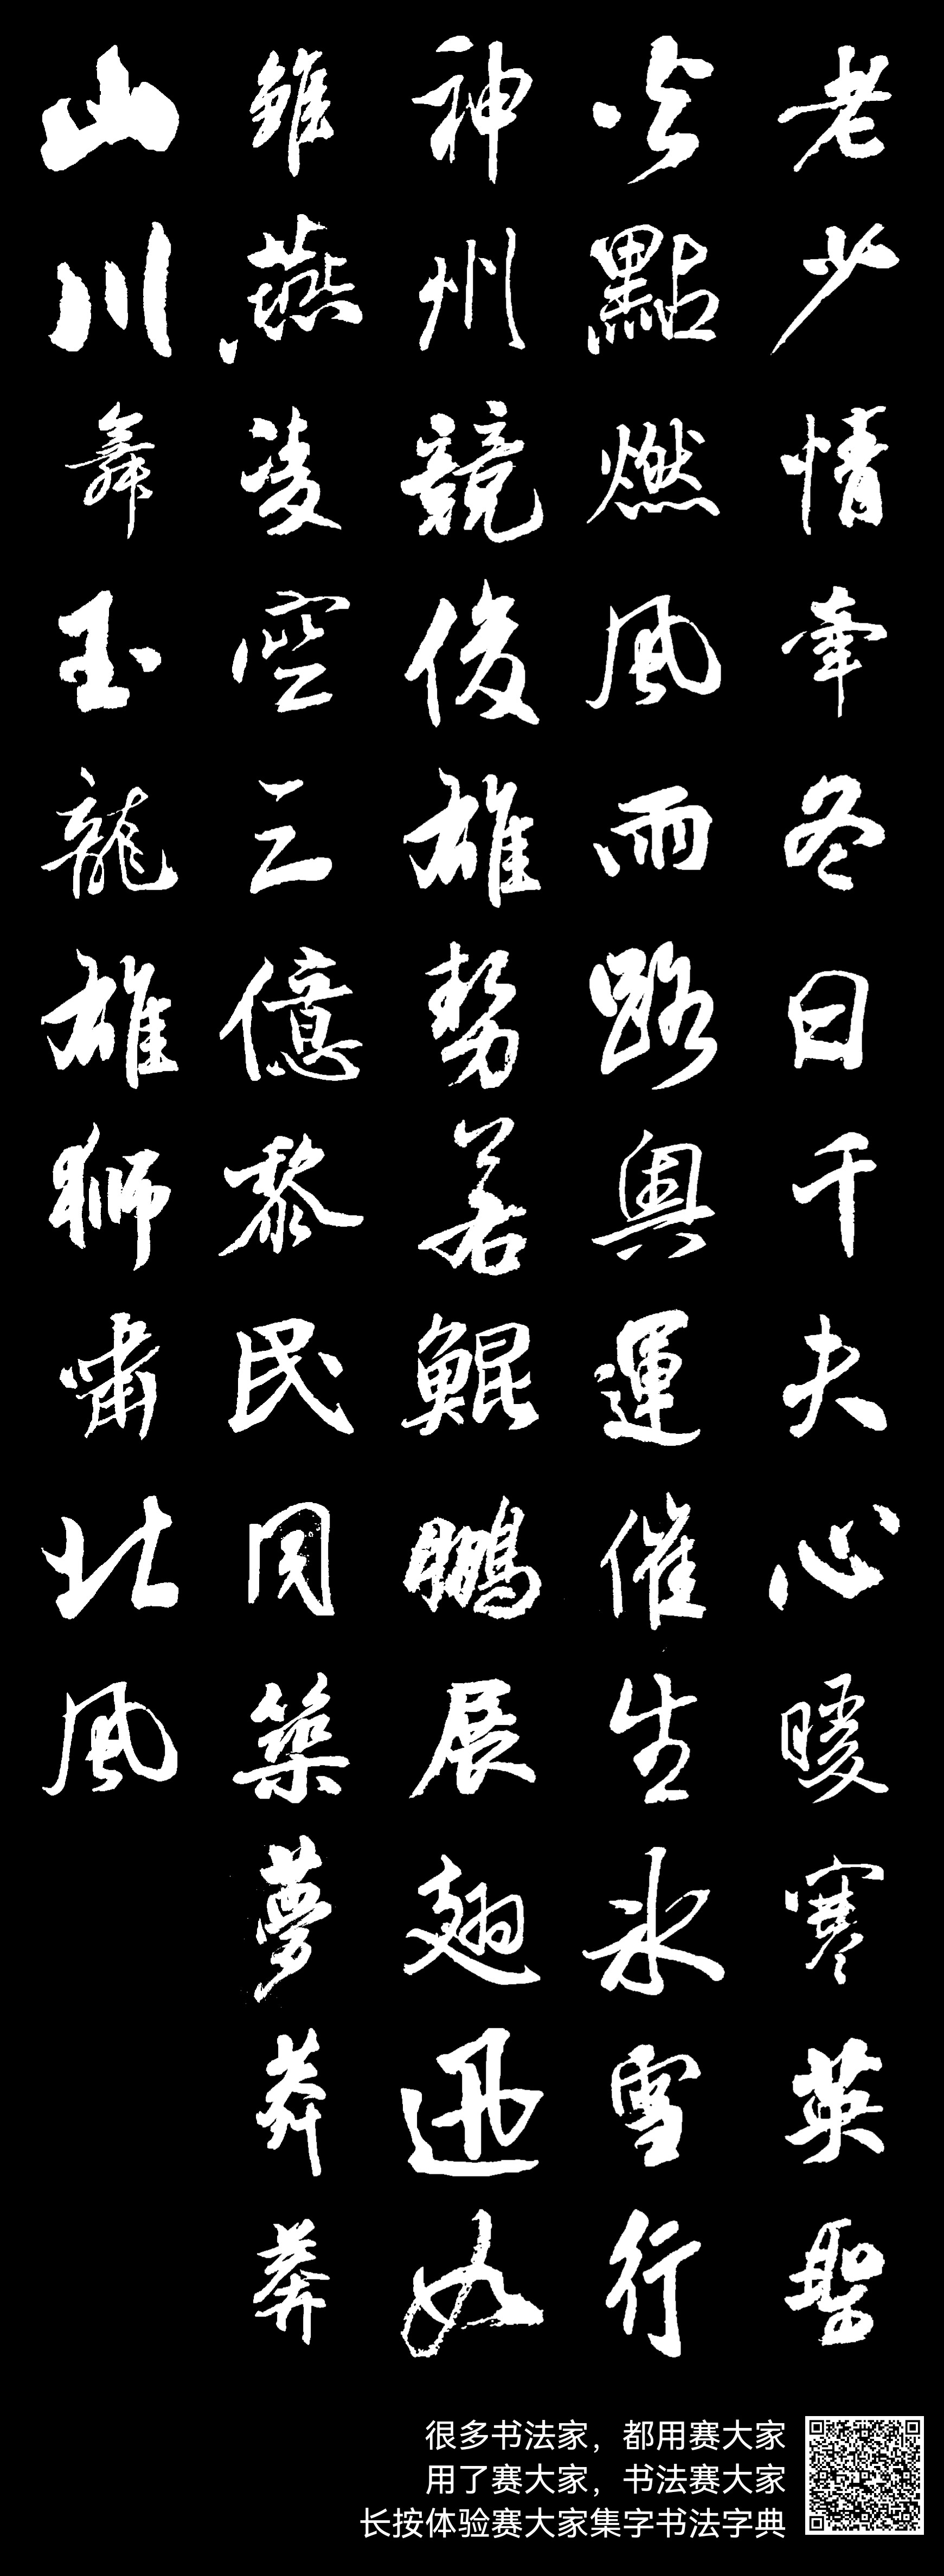 老少情牽冬日千夫心暖寒英聖
火點燃風雨路奧運催生氷雪行
神州競俊雄勢若鯤鵬展翅迅如
雛燕凌空三億黎民同築夢莽莽
山川舞玉龍雄獅嘯北風
很多书法家，都用赛大家
用了赛大家，书法赛大家
长按体验赛大家集字书法字典